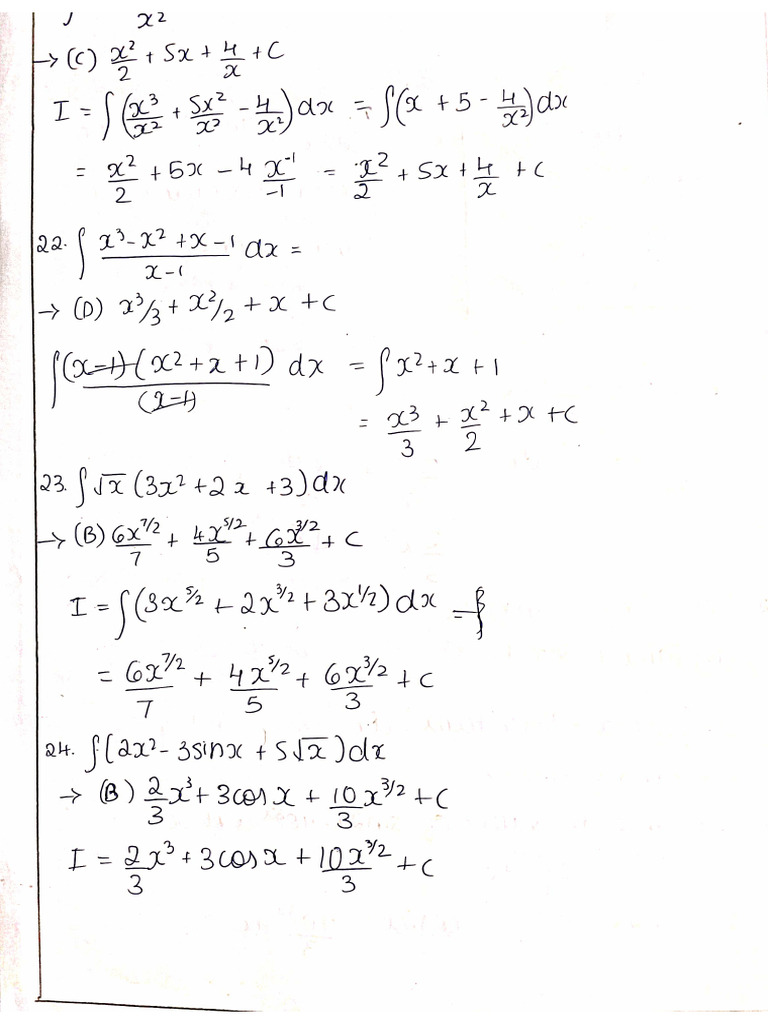 ∫ x²
→ (C) x²/2 + 5x + 4/x + C
I = ∫(x³/x² + 5x²/x² - 4/x²)dx = ∫(x + 5 - 4/x²)dx
= x²/2 + 5x - 4 x⁻¹/-1 = x²/2 + 5x + 4/x + C
22. ∫ x³-x²+x-1/x-1 dx =
→ (D) x³/3 + x²/2 + x + C
∫(x-1)(x²+x+1)/(x-1) dx = ∫x²+x+1
= x³/3 + x²/2 + x + C
23. ∫√x (3x²+2x+3)dx
→ (B) 6x^7/2/7 + 4x^5/2/5 + 6x^3/2/3 + C
I = ∫(3x^5/2 + 2x^3/2 + 3x^1/2)dx =
= 6x^7/2/7 + 4x^5/2/5 + 6x^3/2/3 + C
24. ∫(2x² - 3sinx + 5√x)dx
→ (B) 2/3 x³ + 3cosx + 10/3 x^3/2 + C
I = 2/3 x³ + 3cosx + 10x^3/2/3 + C